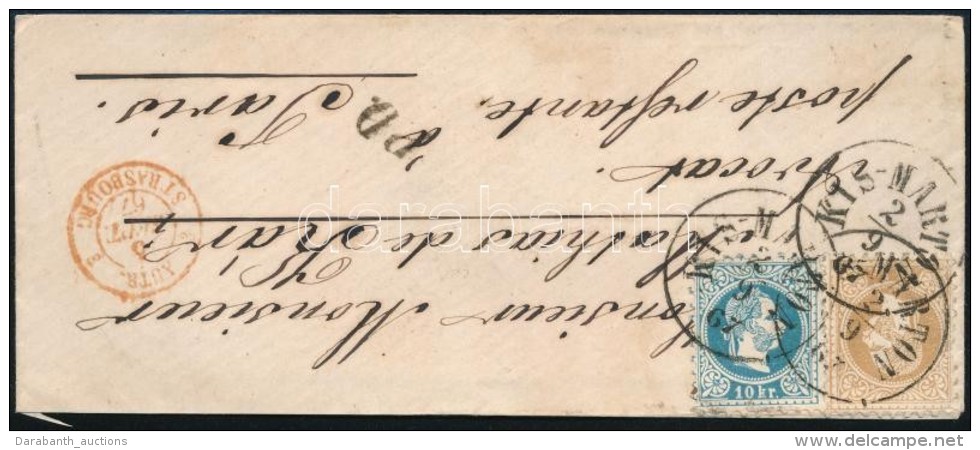 Monsieur Monsieur
Mathias de
Avocat
poste restante. à
Paris.
P.D.
STRASBOURG
AUTR.
67
KIS-MARTON
2/9
KIS-MARTON
2/9
10 kr.
darabanth
Darabanth_auctions
delcampe.net